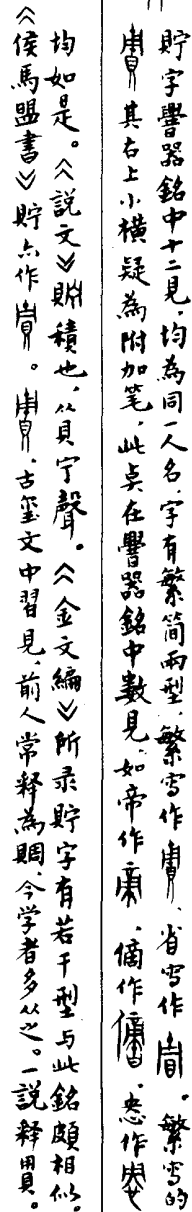 貯字譻器銘中十二見，均為同一人名，字有繁简兩型，繁寫作、省寫作。繁寫的
其右上小横疑為附加笔，此点在譻器銘中數見，如帝作、僃作、悤作
均如是。《說文》貯積也，从貝宁聲。《金文編》所录貯字有若干型与此銘頗相似。
《侯馬盟書》貯亦作。古璽文中習見，前人常释為賙，今学者多从之。一說释買。